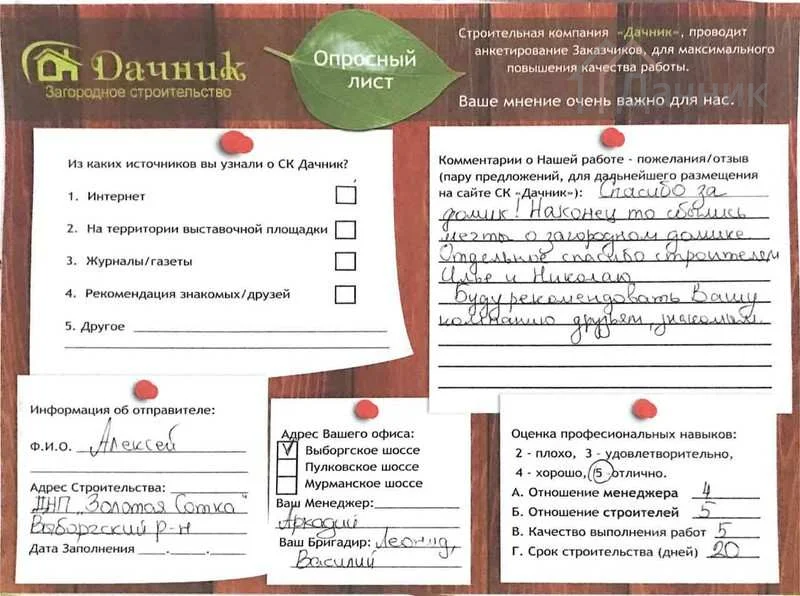 Дачник
Загородное строительство
Опросный
лист
Строительная компания «Дачник», проводит
анкетирование Заказчиков, для максимального
повышения качества работы.
Ваше мнение очень важно для нас.
Дачник
Из каких источников вы узнали о СК Дачник?
1. Интернет
2. На территории выставочной площадки
3. Журналы/газеты
4. Рекомендация знакомых/друзей
5. Другое
Комментарии о Нашей работе - пожелания/отзыв
(пару предложений, для дальнейшего размещения
на сайте СК «Дачник»): Спасибо за
домик! Наконец то сбылись
мечты о загородном домике
Отдельное спасибо строителем
Илье и Николаю
Буду рекомендовать Вашу
компанию друзьям, знакомым.
Информация об отправителе:
Ф.И.О. Алексей
Адрес Строительства:
ДНП "Золотая Сотка"
Выборгский р-н
Дата Заполнения __.__.__
Адрес Вашего офиса:
V Выборгское шоссе
Пулковское шоссе
Мурманское шоссе
Ваш Менеджер:
Аркадий
Ваш Бригадир: Леонид,
Василий
Оценка профессиональных навыков:
2 - плохо, 3 - удовлетворительно,
4 - хорошо, 5 - отлично.
А. Отношение менеджера 4
Б. Отношение строителей 5
В. Качество выполнения работ 5
Г. Срок строительства (дней) 20